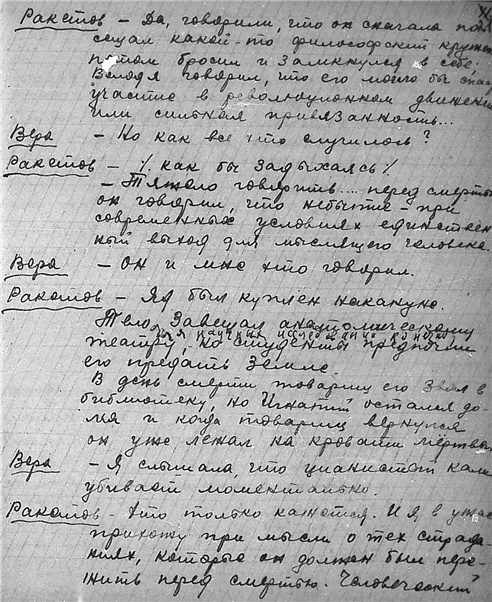 Ракетов – Да, говорили, что он сначала по
сещал какой-то философский круж
потом бросил и замкнулся в себе.
Володя говорил, что его могло бы спа
участие в революционном движени
или сильная привязанность...
Вера – Но как все это случилось?
Ракетов – /. как бы задыхаясь /.
– Тяжело говорить.... перед смертью
он говорил, что небытие – при
современных условиях единствен
ный выход для мыслящего человека.
Вера – Он и мне это говорил.
Ракетов – Яд был куплен накануне.
Тело завещал анатомическому
для научных исследований
театру, но студенты предпочли
его предать земле.
В день смерти товарищ его звал в
библиотеку, но Игнатий остался до-
ма и когда товарищ вернулся
он уже лежал на кровати мёртвым
Вера – Я слышала, что цианистый кали
убивает моментально.
Ракетов – Это только кажется. И я в ужас
прихожу при мысли о тех страда-
ниях, которые он должен был пере-
жить перед смертью. Человеческий